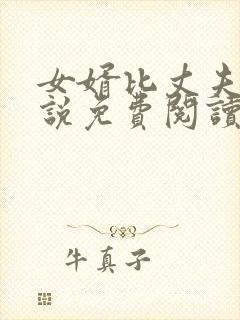 女婿比丈夫
說免費閱讀
牛真子